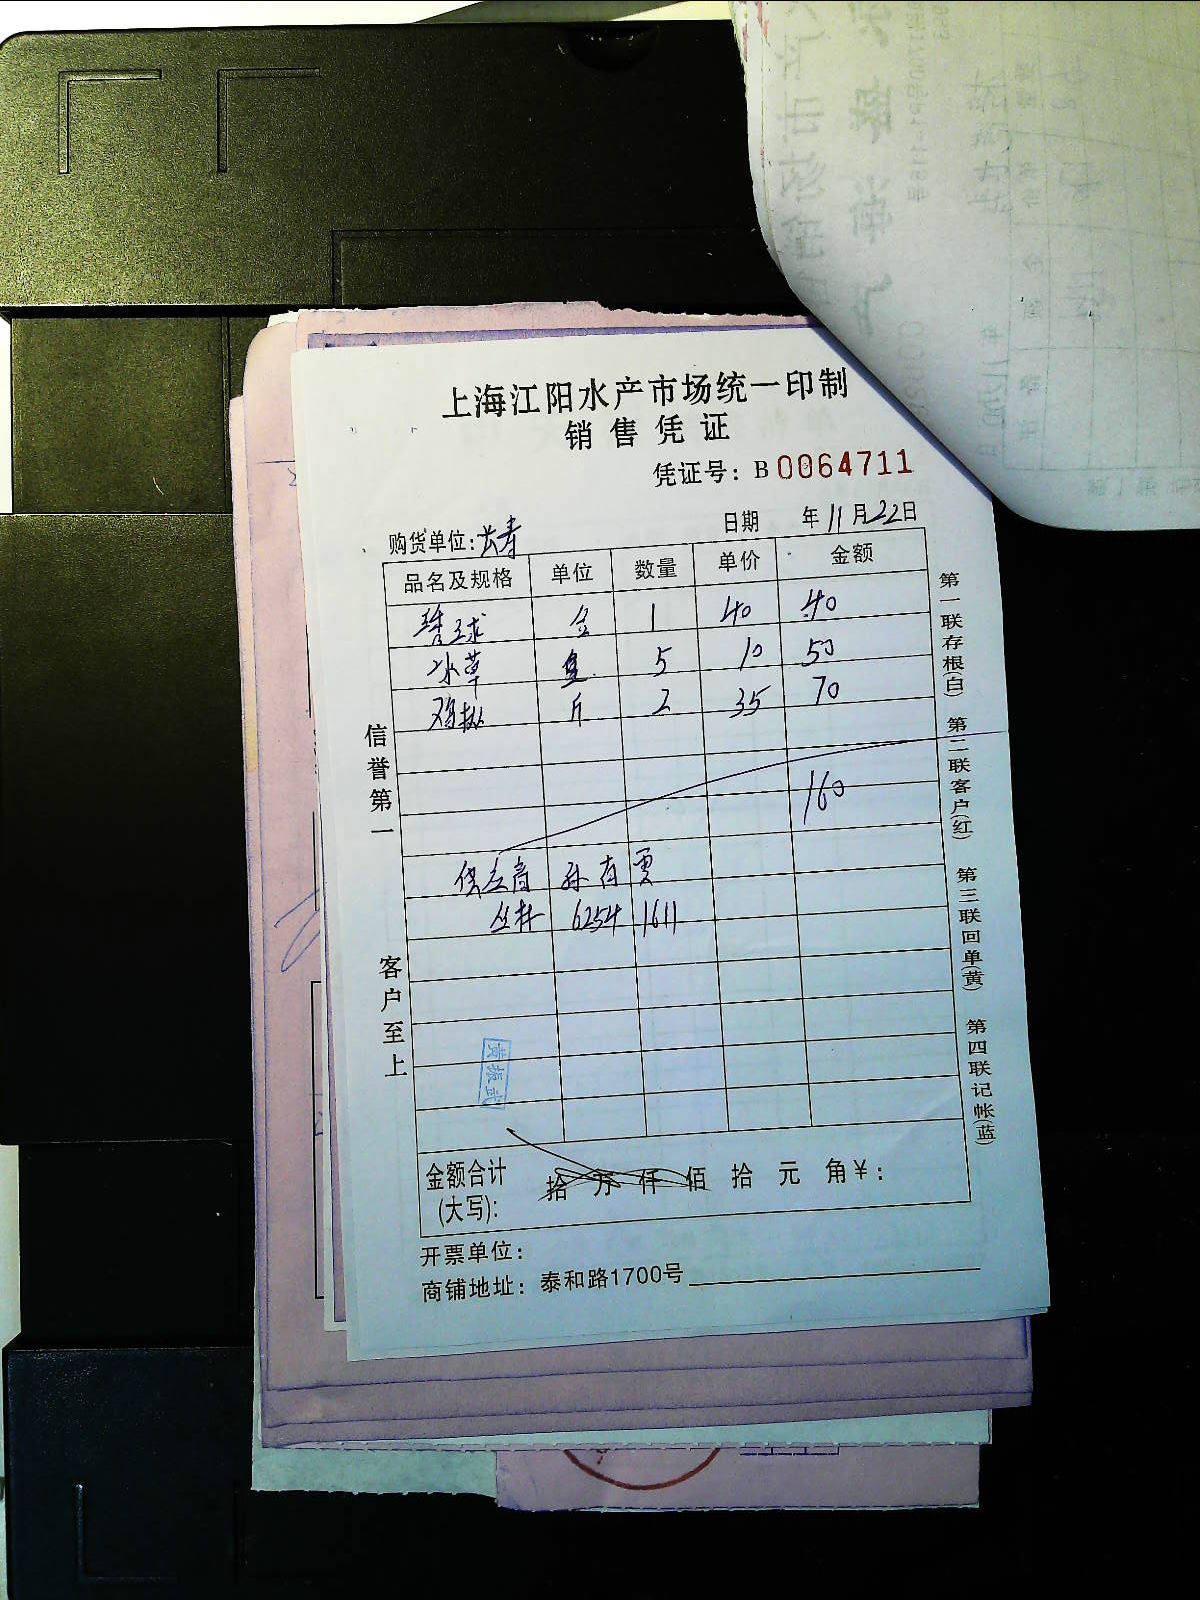 上海江阳水产市场统一印制
销售凭证
凭证号：B 0064711
购货单位：长寿 日期 年11月22日
品名及规格 单位 数量 单价 金额
球 1 40 40
冰草 盒 5 10 50
鸡枞 斤 2 35 70
160
供应商 孙
丛林 6254 1611
黄振武
金额合计(大写)： 拾 万 仟 佰 拾 元 角 ¥：
开票单位：
商铺地址：泰和路1700号
信誉第一
客户至上
第一联存根(白) 第二联客户(红) 第三联回单(黄) 第四联记帐(蓝)